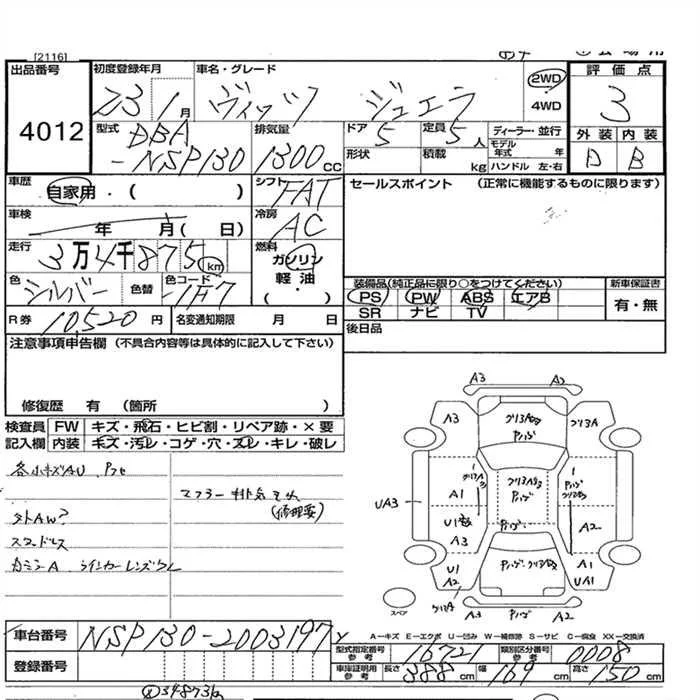 [2116]
出品番号
4012
初度登録年月
23 1月
車名・グレード
ヴィッツ ジュエラ
2WD
4WD
評価点
3
外装 内装
D B
型式
DBA
-NSP130
排気量
1300cc
ドア
5
定員
5人
形状
積載 kg
ディーラー・並行
モデル年式 年
ハンドル 左・右
車歴
自家用・( )
シフト
FAT
セールスポイント (正常に機能するものに限ります)
車検
年 月( 日)
冷房
AC
走行
3万4千875km
燃料
ガソリン
軽油
( ・ )
色
シルバー
色替
色コード
-1F7
装備品(純正品に限り○をつけてください)
PS PW ABS エアB
SR ナビ TV
新車保証書
有・無
R券 10,520円
名変通知期限 月 日
後日品
注意事項申告欄 (不具合内容等は具体的に記入して下さい)
修復歴 有 (箇所 )
検査員
記入欄
FW キズ・飛石・ヒビ割・リペア跡・×要
内装 キズ・汚レ・コゲ・穴・スレ・キレ・破レ
各小キズAU
マフラー排気もれ
(修理要)
外AW?
スタッドレス
カミラーA ウインカーレンズワレ
A3
A3
A3
UA3
A1
A3
U1
A2
A3
A2
A2
A1
UA1
スペア
A-キズ E-エクボ U-凹み W-補修跡 S-サビ C-腐食 XX-交換済
車台番号
NSP130-2003197
登録番号
型式指定番号
参考
16721
類別区分番号
参考
0008
車庫証明用
参考
長さ 388cm
幅 169cm
高さ 150cm